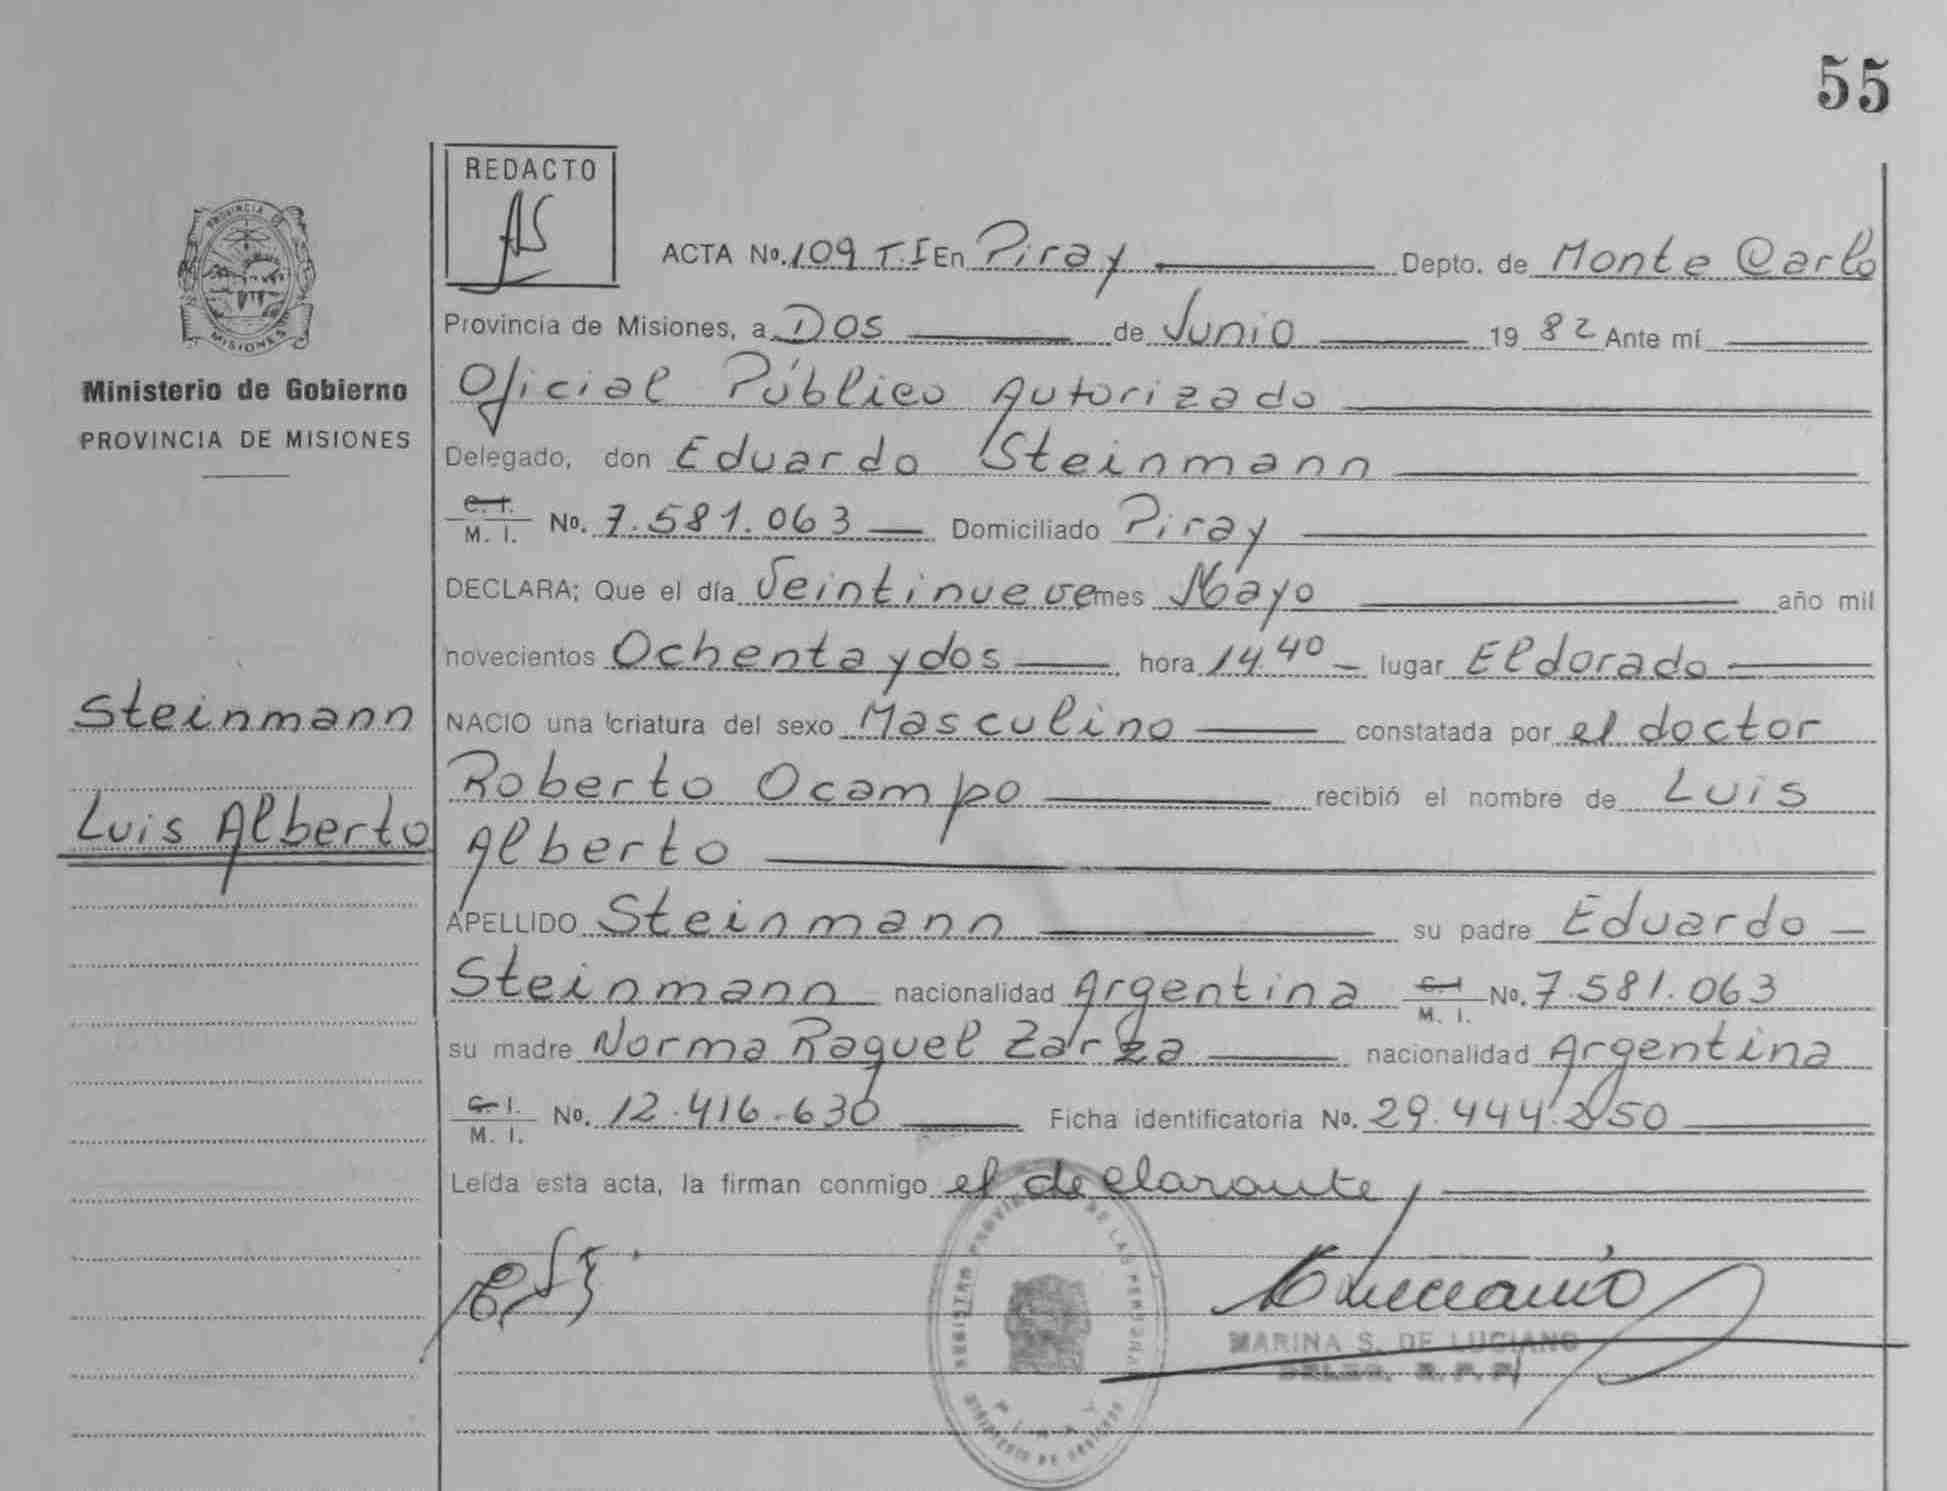 55
REDACTO
AS
ACTA No. 109 T.I En Piray Depto. de Monte Carlo
PROVINCIA DE
MISIONES
Provincia de Misiones, a Dos de Junio 19 82 Ante mí
Ministerio de Gobierno
PROVINCIA DE MISIONES
Oficial Público Autorizado
Delegado, don Eduardo Steinmann
C. I.
M. I. No. 7.581.063 Domiciliado Piray
DECLARA; Que el día Veintinueve mes Mayo año mil
novecientos Ochenta y dos hora 14.40 lugar Eldorado
Steinmann
Luis Alberto
NACIO una criatura del sexo Masculino constatada por el doctor
Roberto Ocampo recibió el nombre de Luis
Alberto
APELLIDO Steinmann su padre Eduardo
Steinmann nacionalidad Argentina C. I. M. I. No. 7.581.063
su madre Norma Raquel Zarza nacionalidad Argentina
C. I.
M. I. No. 12.416.630 Ficha identificatoria No. 29.444.250
Leída esta acta, la firman conmigo el declarante,
REGISTRO PROVINCIAL DE LAS PERSONAS
PIRAY
MINISTERIO DE GOBIERNO
MARINA S. DE LUCIANO
DELEG. R. P. P.